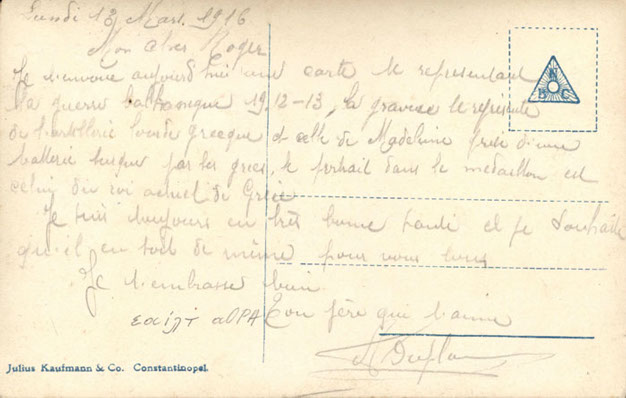 Lundi 13 Mars. 1916
Mon cher Roger
Je t'envoie aujourd'hui une carte te représentant
la guerre balkanique 1912-13, la gravure te représente
de l'artillerie lourde grecque et celle de Madeleine prise d'une
batterie turque par les grecs, le portrait dans le médaillon est
celui du roi actuel de Grèce
Je suis toujours en très bonne santé et je souhaite
qu'il en soit de même pour vous tous
Je t'embrasse bien
Ton père qui t'aime
N
B C
Julius Kaufmann & Co. Constantinopel.